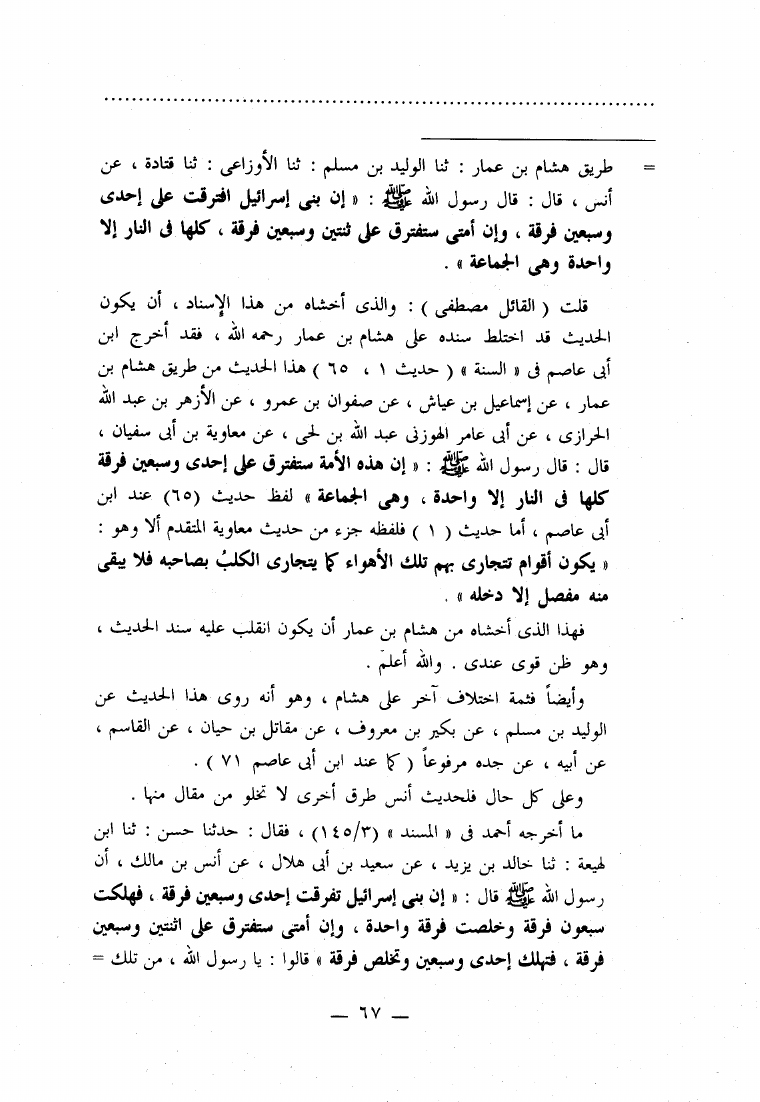 = طريق هشام بن عمار : ثنا الوليد بن مسلم : ثنا الأوزاعى : ثنا قتادة ، عن
أنس ، قال : قال رسول الله ﷺ : « إن بنى إسرائيل افترقت على إحدى
وسبعين فرقة ، وإن أمتى ستفترق على ثنتين وسبعين فرقة ، كلها فى النار إلا
واحدة وهى الجماعة » .
قلت ( القائل مصطفى ) : والذى أخشاه من هذا الإسناد ، أن يكون
الحديث قد اختلط سنده على هشام بن عمار رحمه الله ، فقد أخرج ابن
أبى عاصم فى « السنة » ( حديث ١ ، ٦٥ ) هذا الحديث من طريق هشام بن
عمار ، عن إسماعيل بن عياش ، عن صفوان بن عمرو ، عن الأزهر بن عبد الله
الحرازى ، عن أبى عامر الهوزنى عبد الله بن لحى ، عن معاوية بن أبى سفيان ،
قال : قال رسول الله ﷺ : « إن هذه الأمة ستفترق على إحدى وسبعين فرقة
كلها فى النار إلا واحدة ، وهى الجماعة » لفظ حديث (٦٥) عند ابن
أبى عاصم ، أما حديث ( ١ ) فلفظه جزء من حديث معاوية المتقدم ألا وهو :
« يكون أقوام تتجارى بهم تلك الأهواء كما يتجارى الكلبُ بصاحبه فلا يبقى
منه مفصل إلا دخله » .
فهذا الذى أخشاه من هشام بن عمار أن يكون انقلب عليه سند الحديث ،
وهو ظن قوى عندى . والله أعلم .
وأيضاً فثمة اختلاف آخر على هشام ، وهو أنه روى هذا الحديث عن
الوليد بن مسلم ، عن بكير بن معروف ، عن مقاتل بن حيان ، عن القاسم ،
عن أبيه ، عن جده مرفوعاً ( كما عند ابن أبى عاصم ٧١ ) .
وعلى كل حال فلحديث أنس طرق أخرى لا تخلو من مقال منها .
ما أخرجه أحمد فى « المسند » (١٤٥/٣) ، فقال : حدثنا حسن : ثنا ابن
لهيعة : ثنا خالد بن يزيد ، عن سعيد بن أبى هلال ، عن أنس بن مالك ، أن
رسول الله ﷺ قال : « إن بنى إسرائيل تفرقت إحدى وسبعين فرقة ، فهلكت
سبعون فرقة وخلصت فرقة واحدة ، وإن أمتى ستفترق على اثنتين وسبعين
فرقة ، فتهلك إحدى وسبعين وتخلص فرقة » قالوا : يا رسول الله ، من تلك =
— ٦٧ —